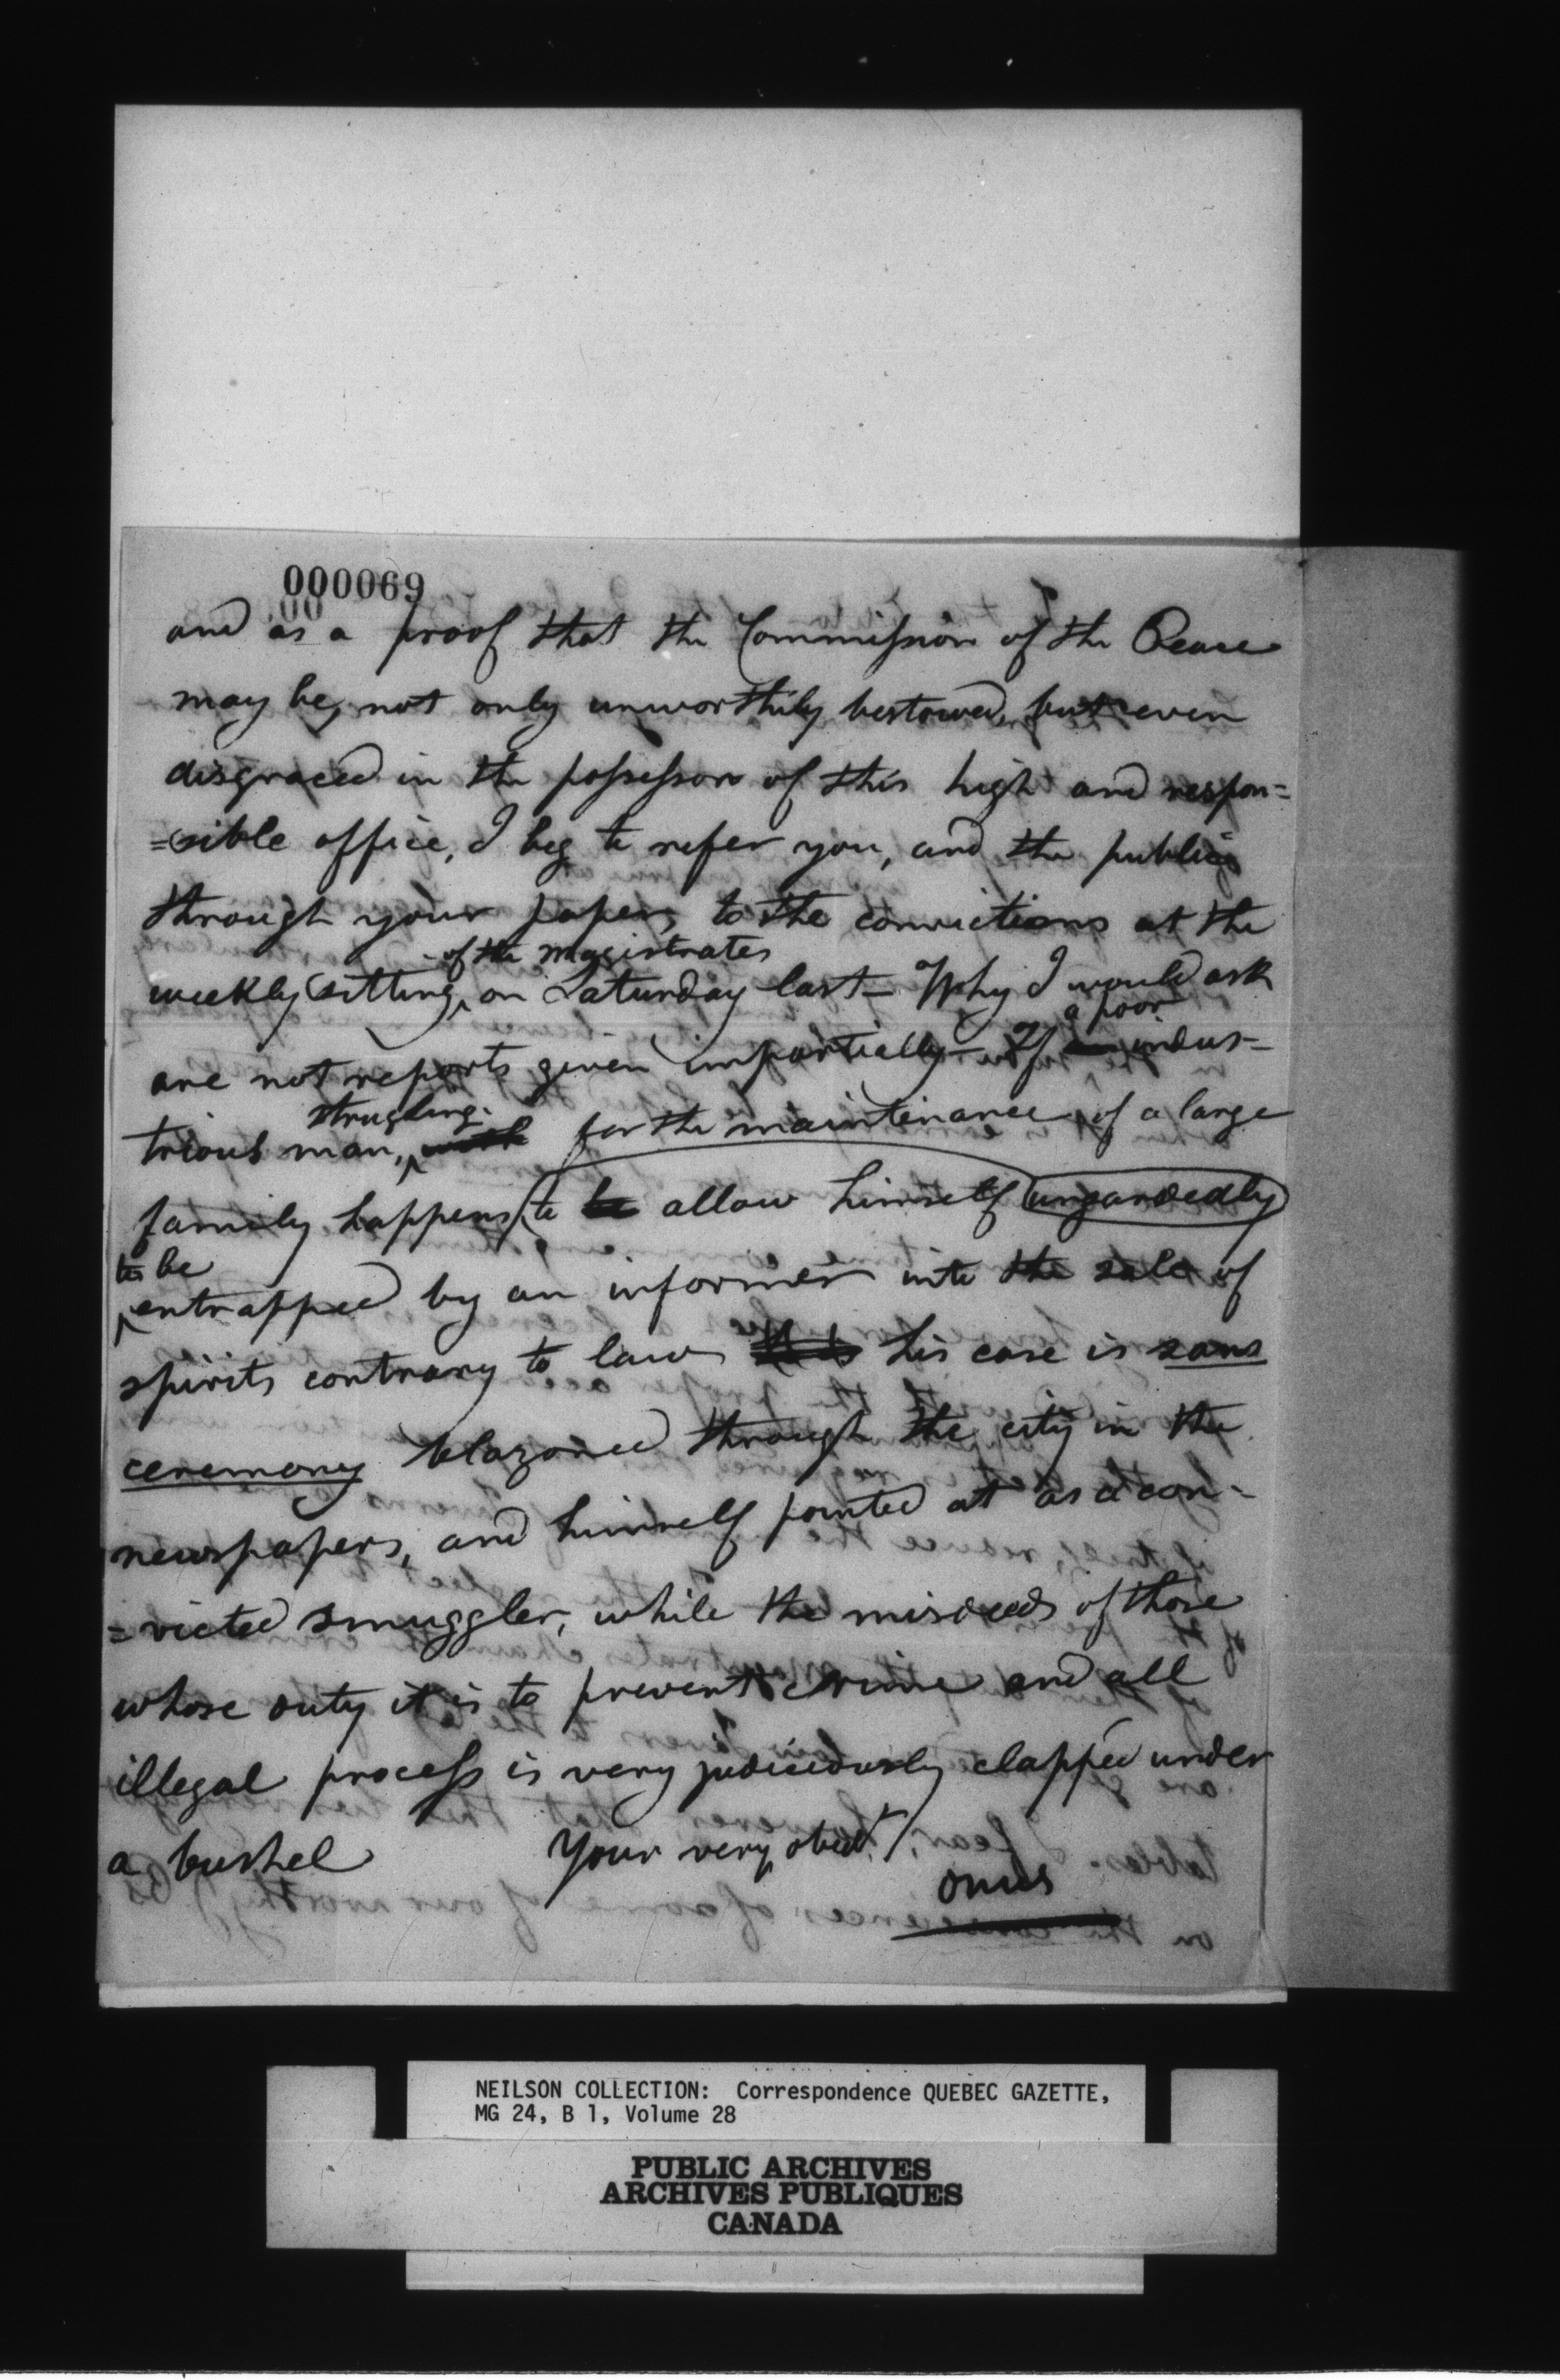 000069
and as a proof that the Commission of the Peace
may be, not only unworthily bestowed, but even
disgraced in the possession of this high and respon=
=sible office, I beg to refer you, and the public
through your paper, to the convictions at the
of the magistrates
weekly sitting, on Saturday last — Why I would ask
a poor
are not reports given impartially — If indus-
strugling
trious man, with for the maintenance of a large
family happens to be allow himself ungardedly
to be
entrapped by an informer into the sale of
spirits contrary to law his case is sans
ceremony blazoned through the city in the
newspapers, and himself pointed at as a con-
=victed smuggler, while the misdeeds of those
whose duty it is to prevent crime and all
illegal process is very judiciously clapped under
a bushel Your very obedt
Onus
NEILSON COLLECTION: Correspondence QUEBEC GAZETTE,
MG 24, B 1, Volume 28
PUBLIC ARCHIVES
ARCHIVES PUBLIQUES
CANADA